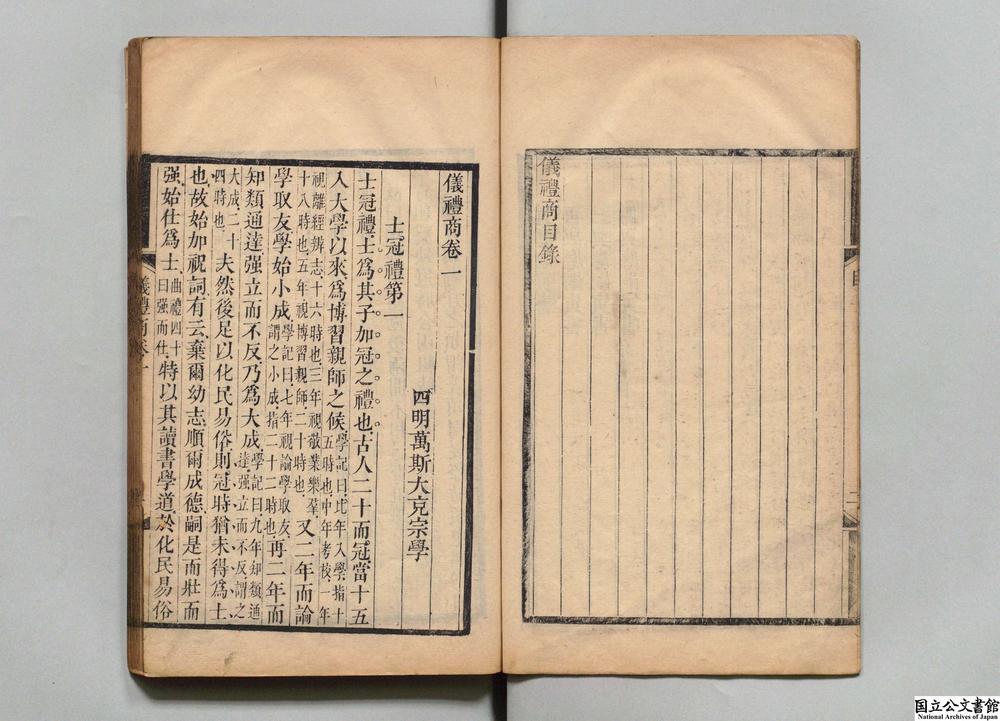 儀禮商目錄
二
儀禮商卷一
四明萬斯大充宗學
士冠禮第一
士冠禮士爲其子加冠之禮也古人二十而冠當十五
入大學以來爲博習親師之候學記曰比年入學指十五時也中年考校一年
視離經辨志十六時也三年視敬業樂羣十八時也五年視博習親師二十時也又二年而論
學取友學始小成學記曰七年視論學取友謂之小成指二十二時也再二年而
知類通達强立而不反乃爲大成學記曰九年知類通達强立而不反謂之
大成二十四時也夫然後足以化民易俗則冠時猶未得爲士
也故始加祝詞有云棄爾幼志順爾成德嗣是而壯而
强始仕爲士曲禮四十曰强而仕特以其讀書學道於化民易俗
儀禮商卷一
国立公文書館
National Archives of Japan